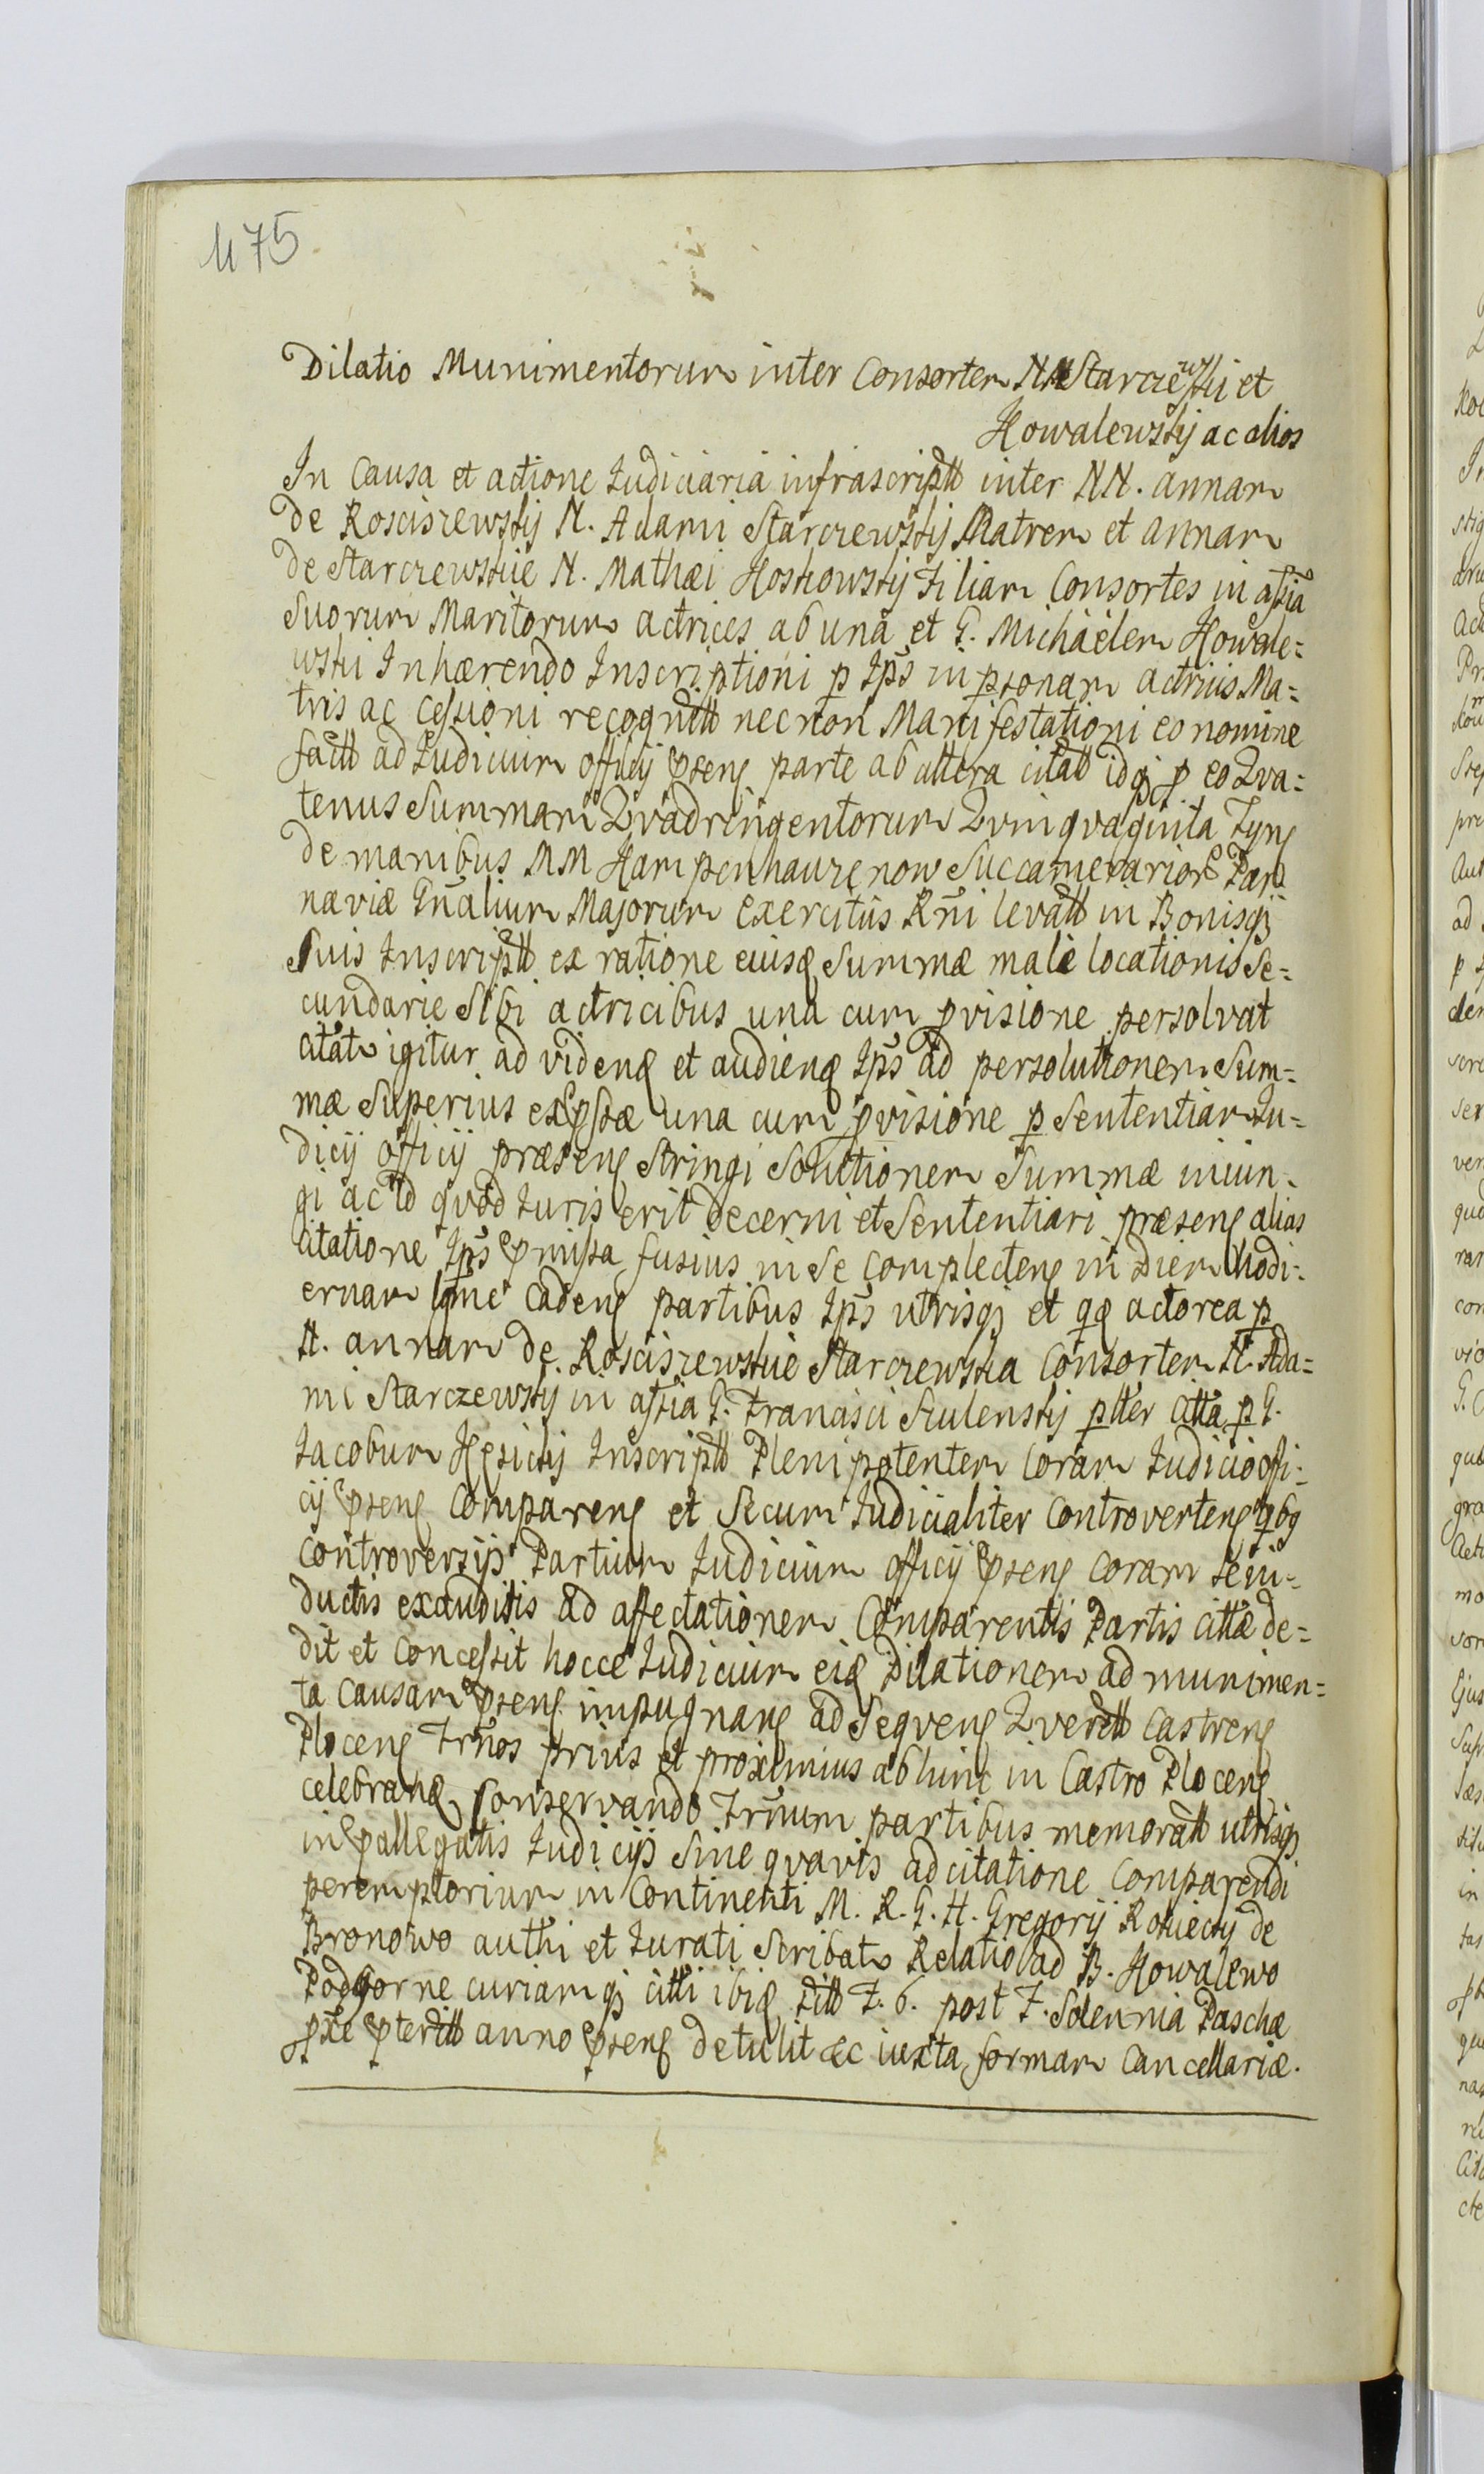 475
Dilatio Munimentorum inter Consortem NN Starczewski et
Kowalewskij ac alios
In Causa et actione Judiciaria infrascriptt inter NN. annam
de Rosciszewskij N. Adami Starczewskij Matrem et annam
de Starczewskie N. Mathæi Koskowskij Filiam Consortes in assia
Suorum Maritorum actrices ab una et G. Michäelem Kowale=
wski Inhærendo Inscriptioni p Ips in psonam actricis Ma=
tris ac Cessioni recognitt necnon Manifestationi eo nomine
factt ad Judicium officij psens parte ab altera citatt idq p eo Qva=
tenus Summam Qvadringentorum Qvinqvaginta Tyns
de manibus MM Hampenhauzenow Succamerarior Par
naviæ Gnalium Majorum exercitus Rni levatt in Bonisqz
Suis Inscriptt ex ratione eiusd Summæ malè locationis Se=
cundarie Sibi actricibus una cum pvisione persolvat
citat igitur ad vidend et audiend Ips ad persolutionem Sum=
mæ Superius expssæ una cum pvisione p Sententiam Ju=
dicij officij præsens Stringi Solutionem Summæ iniun=
gi ac id qvod Juris erit decerni et Sententiari præsens alias
Citatione Ips pmissa fusius in Se complectens in diem hodi=
ernam lgme cadens partibus Ips utrisqz et qd actorea p
N. annam de Rosciszewskie Starczewska Consortem N. Ada=
mi Starczewskij in assia G. Francisci Sculenskij ptter Citta p G.
Jacobum Kesickij Inscriptt Plenipotentem Coram Judicio offi=
cij psens Comparens et Secum Judicialiter Controvertens qbq
controversijs Partium Judicium officij psens coram se in=
ductis exauditis ad affectationem Comparentis Partis Cittæ de=
dit et Concessit hocce Judicium eid Dilationem ad munimen=
ta Causam psens impugnans ad Seqvens Qverett Castrens
Plocens Trnos prius et proximius ab hinc in Castro Plocens
celebrand Conservando Trnum partibus memoratt utrisqz
in pallegatis Judicijs Sine qvavis adcitatione Comparendi
peremptorium in Continenti M. R. G. N. Gregorij Rokiecij de
Bronowo authi et Jurati Scribat Relatio ad B. Kowalewo
Podgorne curiamqz citti ibid Titt F. 6. post F. Solennia Paschæ
pxe pteritt anno psens detulit &c iuxta formam Cancellariæ.